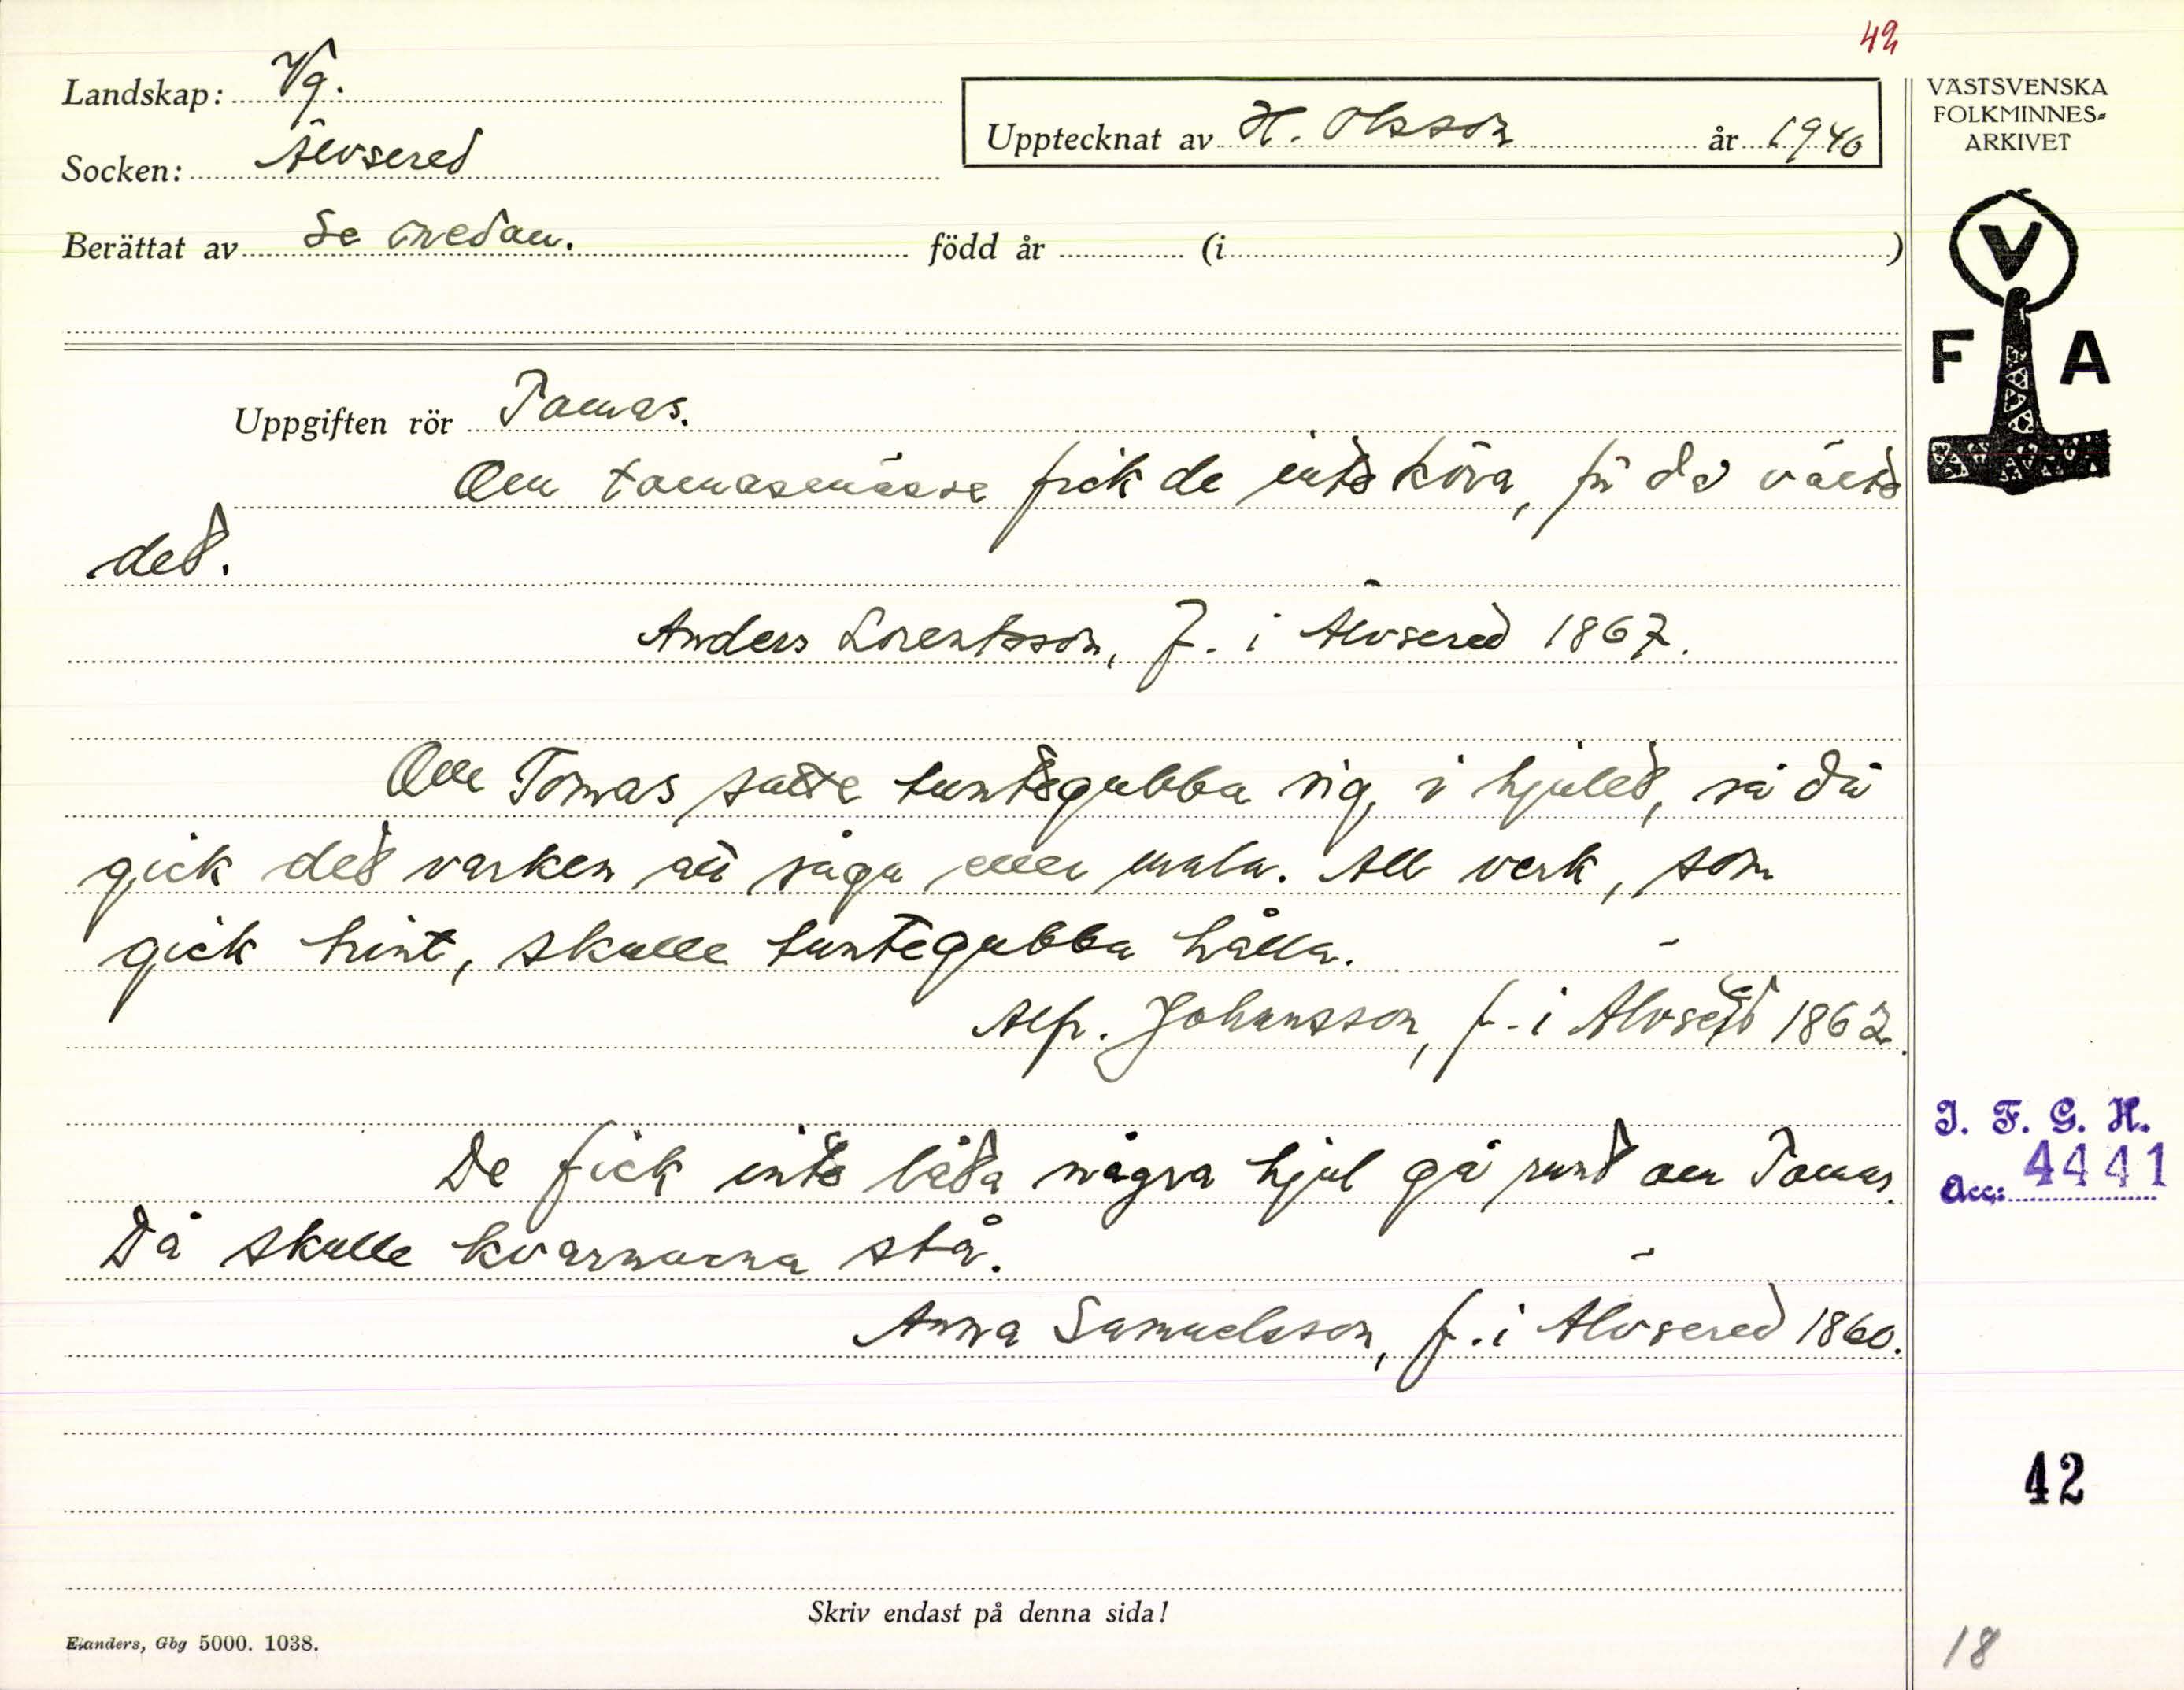 42
Landskap: Vg.
Socken: Älvsered
Upptecknat av H. Olsson år 1940
Berättat av Se nedan. född år (i )
VÄSTSVENSKA
FOLKMINNES-
ARKIVET
V
F A
Uppgiften rör Tomas.
Om tomasmässe fick de inte köra, för då
det.
Anders Lorentsson, f. i Älvsered 1867.
Om Tomas satte tuntegubba sig i hjulet, så då
gick det varken att såga eller mala. All verk, som
gick trint, skulle tuntegubba hålla.
Alfr. Johansson, f. i Älvsered 1862.
De fick inte låta några hjul gå runt om Tomas.
Då skulle kvarnarna stå.
Anna Samuelsson, f. i Älvsered 1860.
I. F. G. H.
Acc: 4441
42
Skriv endast på denna sida!
Elanders, Gbg 5000. 1038.
18